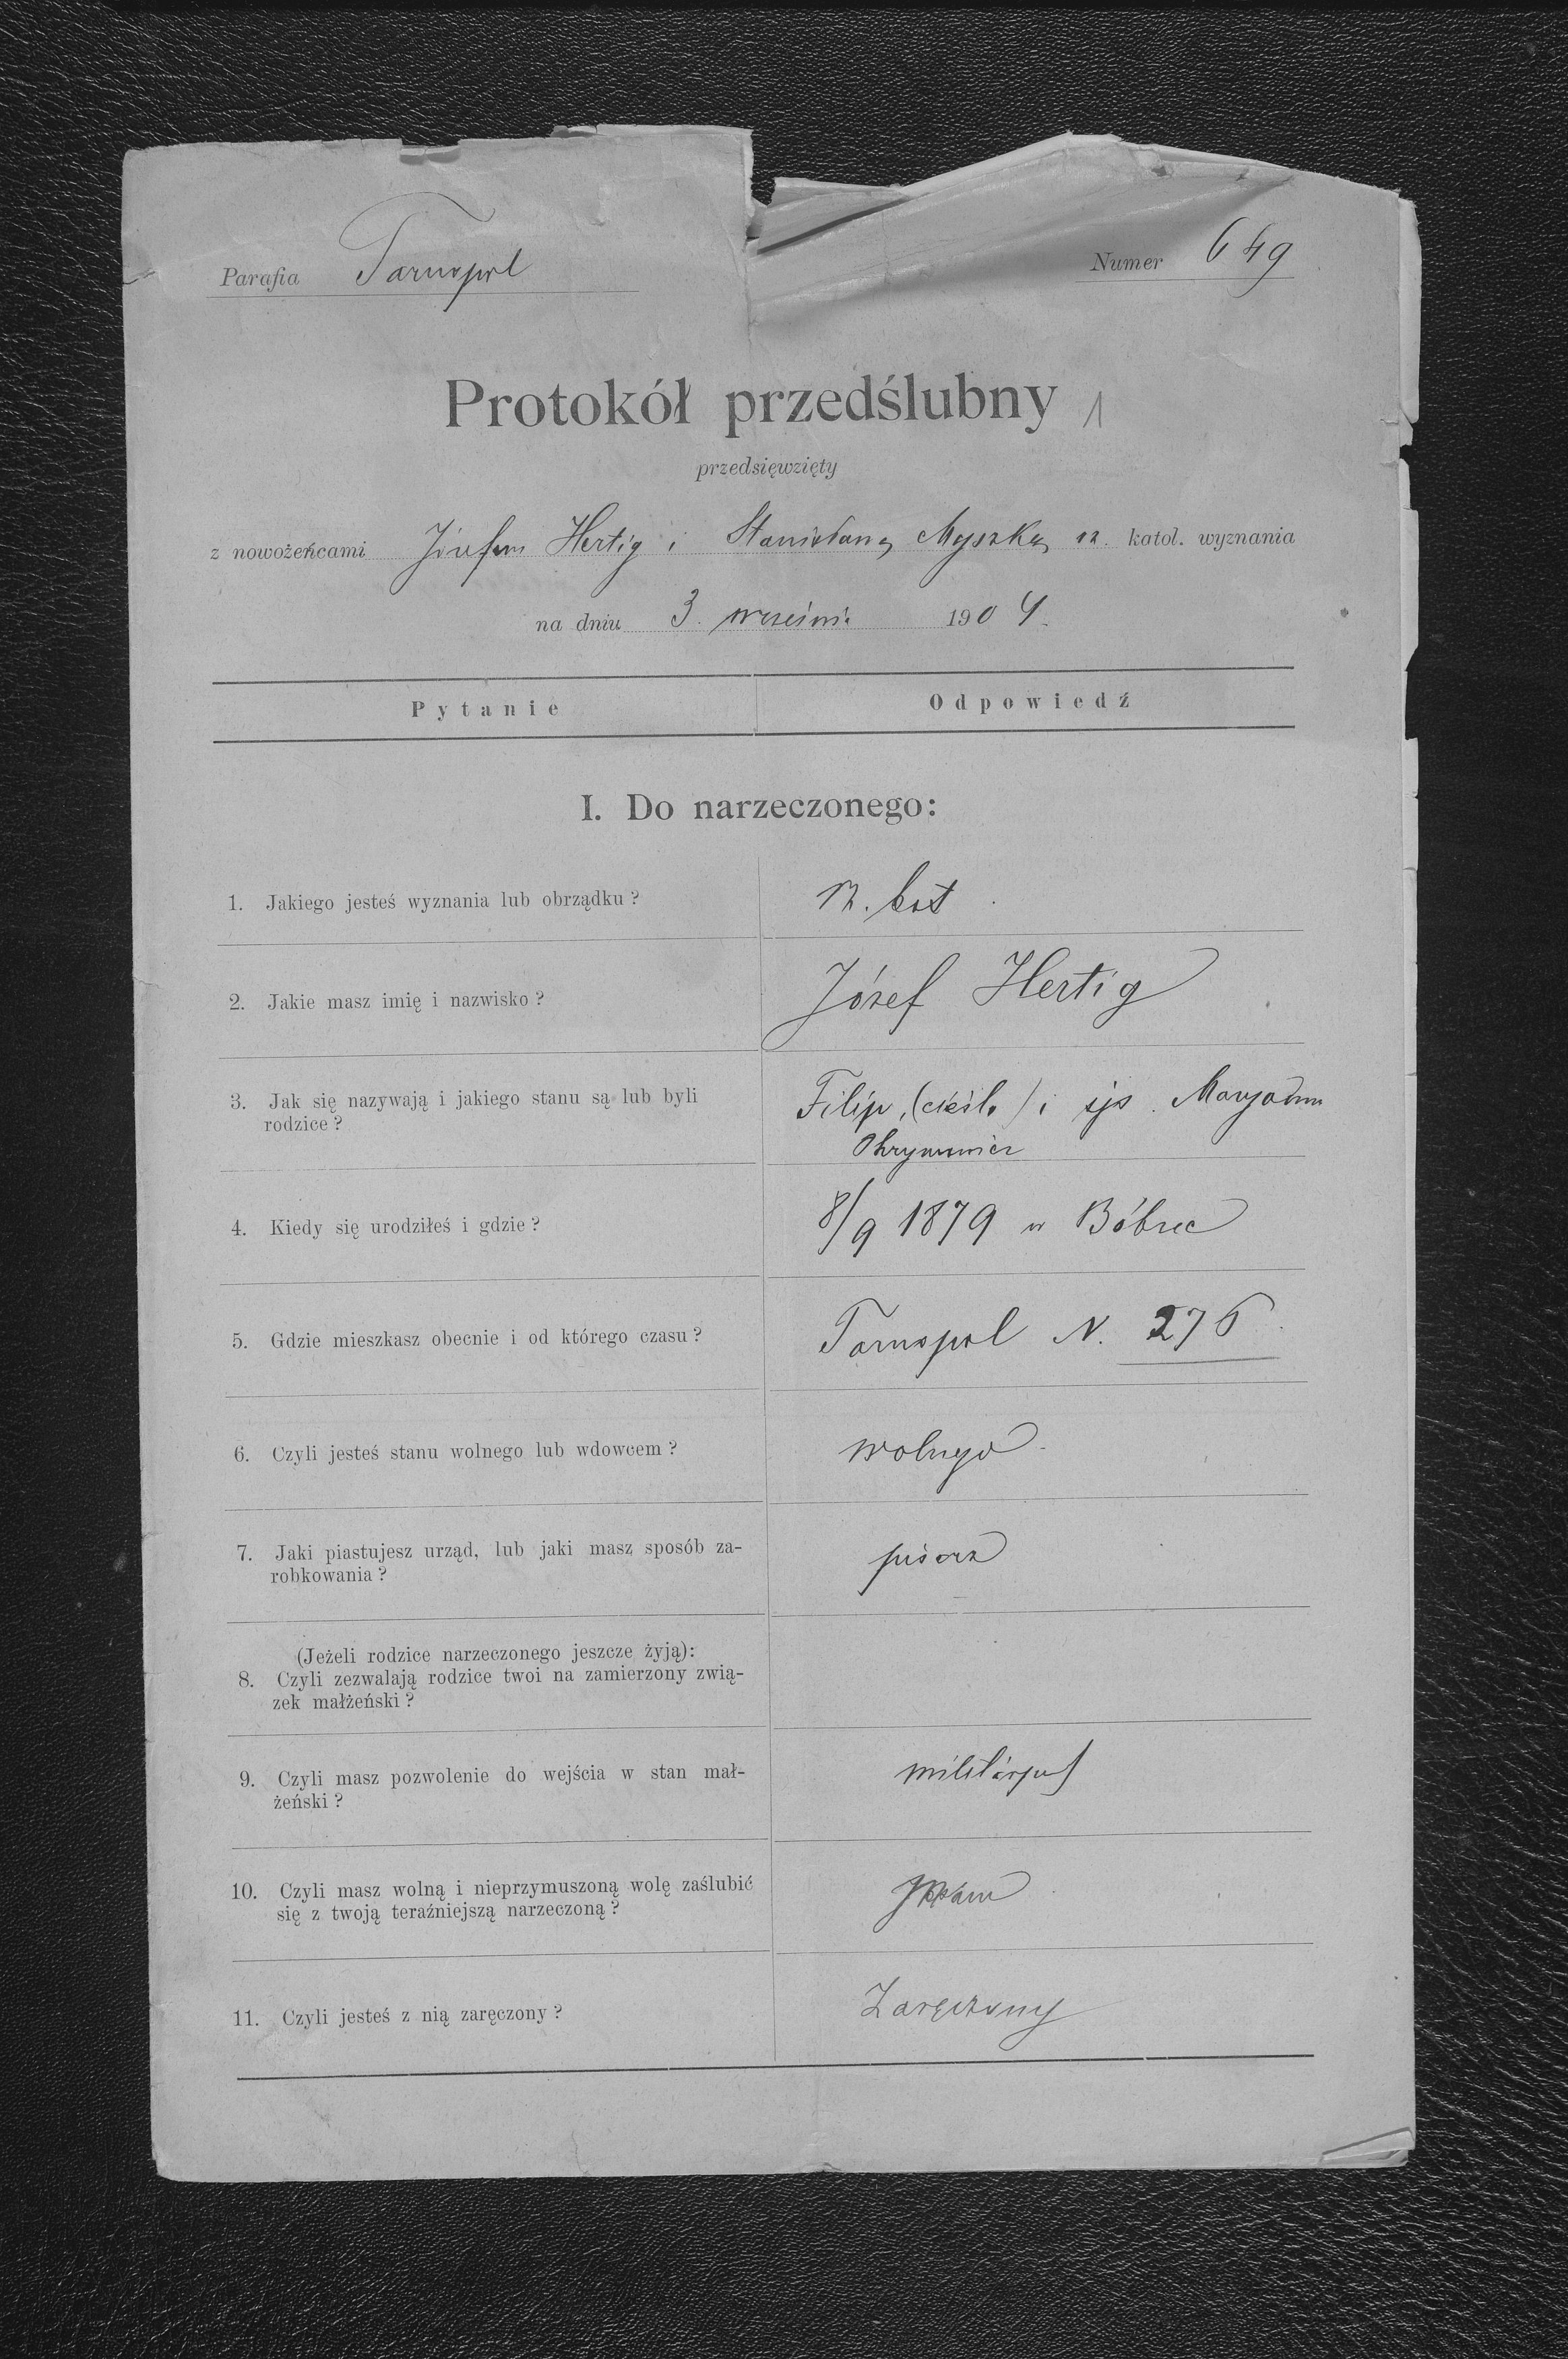 Parafia Tarnopol
Numer 649
Protokół przedślubny 1
przedsięwzięty
z nowożeńcami Józefem Hertig i Stanisławą Myszką rz. katol. wyznania
na dniu 3. września 1904.
Pytanie
Odpowiedź
I. Do narzeczonego:
1. Jakiego jesteś wyznania lub obrządku?
rz. kat
2. Jakie masz imię i nazwisko?
Józef Hertig
3. Jak się nazywają i jakiego stanu są lub byli
rodzice?
Filip, (cieśla) i śp. Maryanna
4. Kiedy się urodziłeś i gdzie?
8/9 1879 w Bóbrce
5. Gdzie mieszkasz obecnie i od którego czasu?
Tarnopol N. 276
6. Czyli jesteś stanu wolnego lub wdowcem?
wolnego
7. Jaki piastujesz urząd, lub jaki masz sposób za-
robkowania?
pisarz
(Jeżeli rodzice narzeczonego jeszcze żyją):
8. Czyli zezwalają rodzice twoi na zamierzony zwią-
zek małżeński?
9. Czyli masz pozwolenie do wejścia w stan mał-
żeński?
10. Czyli masz wolną i nieprzymuszoną wolę zaślubić
się z twoją teraźniejszą narzeczoną?
11. Czyli jesteś z nią zaręczony?
Zaręczony